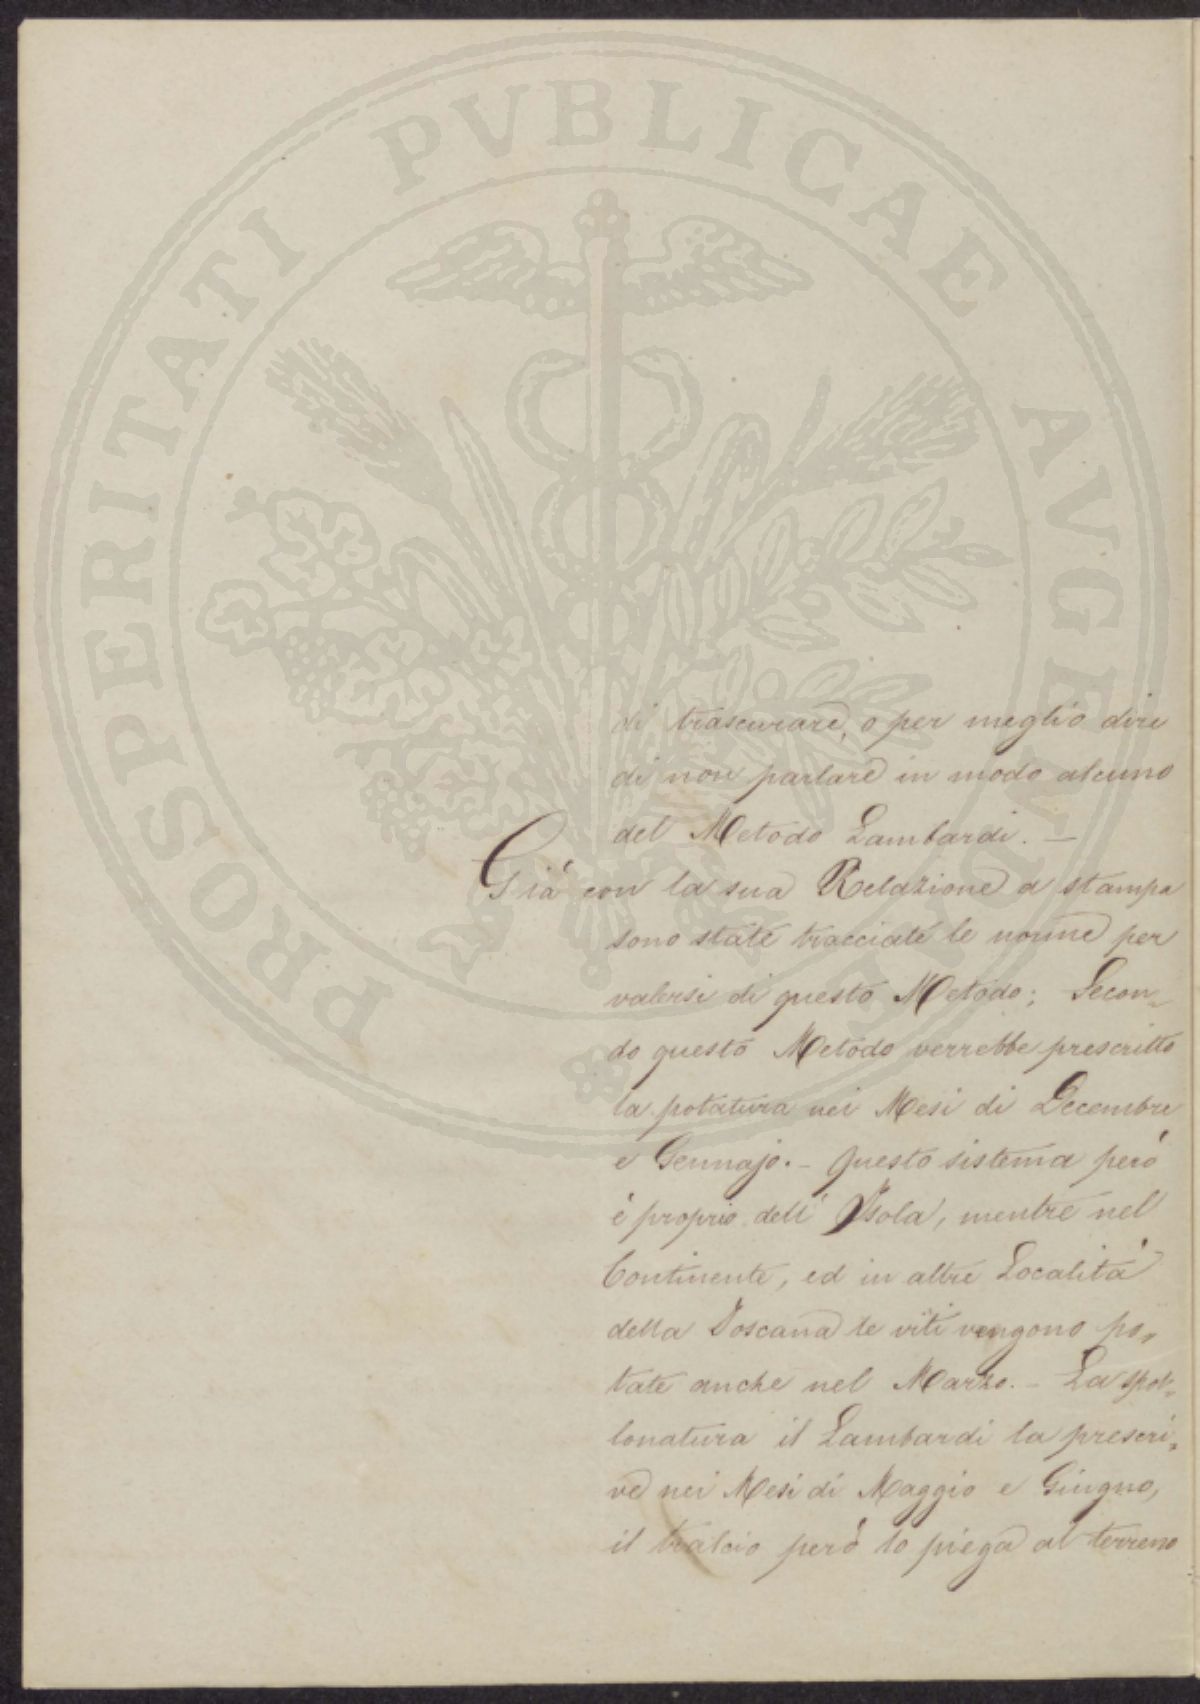 PROSPERITATI PVBLICAE AVGENDAE
di trascurare, o per meglio dire
di non parlare in modo alcuno
del Metodo Lambardi. —
Già con la sua Relazione a stampa
sono state tracciate le norme per
valersi di questo Metodo; Secon-
do questo Metodo verrebbe prescritto
la potatura nei Mesi di Decembre
e Gennajo. - Questo sistema però
è proprio dell' Isola, mentre nel
Continente, ed in altre Località
della Toscana le viti vengono po-
tate anche nel Marzo. - La spol-
lonatura il Lambardi la prescri-
ve nei Mesi di Maggio e Giugno,
il tralcio però lo piega al terreno